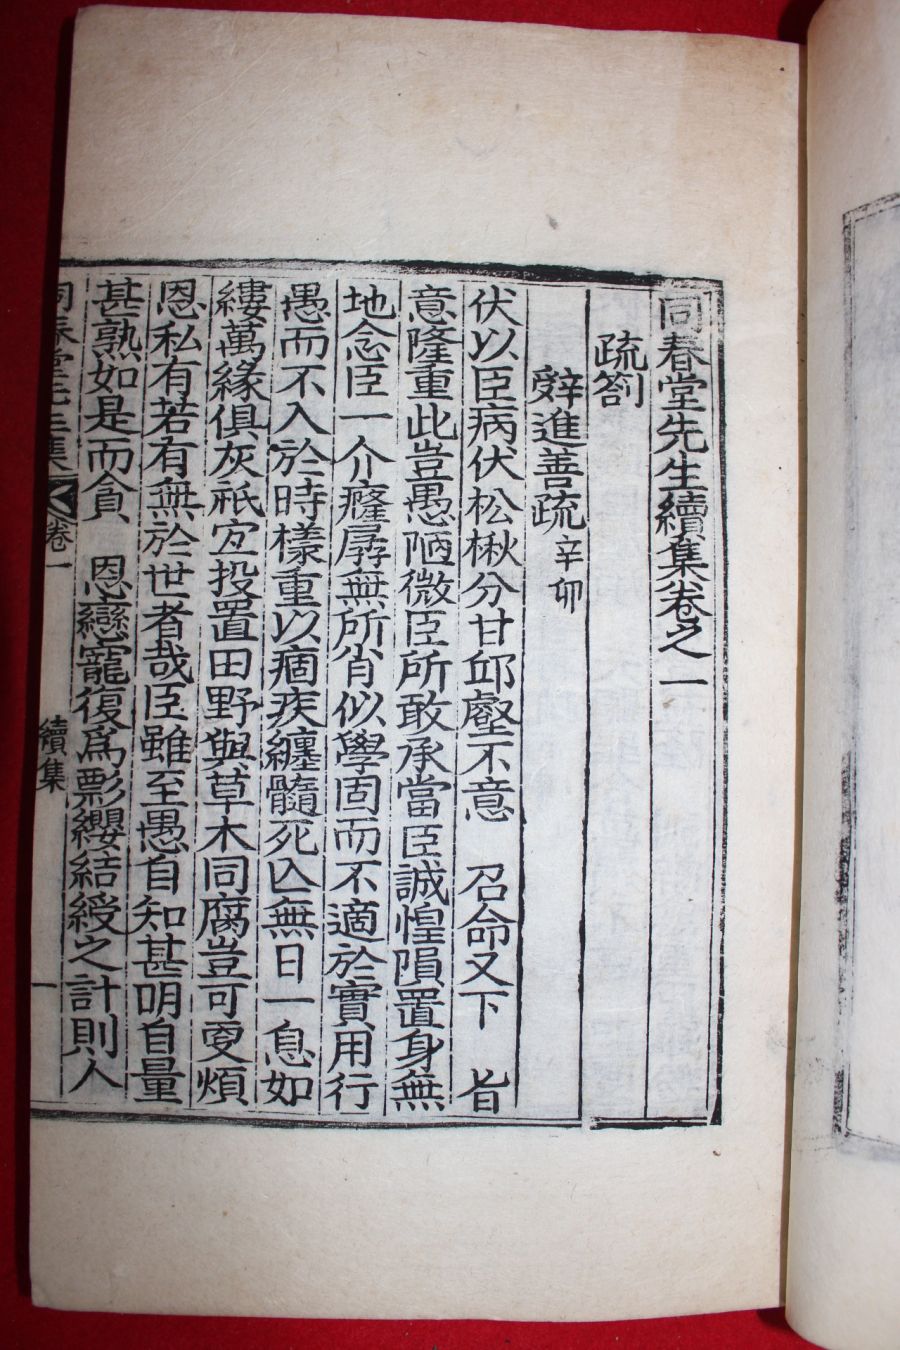 同春堂先生續集卷之一
疏劄
辭進善疏 辛卯
伏以臣病伏松楸分甘邱壑不意 召命又下 旨
意隆重此豈愚陋微臣所敢承當臣誠惶隕置身無
地念臣一介癃孱無所肖似學固而不適於實用行
愚而不入於時樣重以痼疾纏髓死亾無日一息如
縷萬緣俱灰祇宜投置田野與草木同腐豈可更煩
恩私有若有無於世者哉臣雖至愚自知甚明自量
甚熟如是而貪 恩戀寵復爲影纓結綬之計則人
同春堂先生集 卷一 續集 一